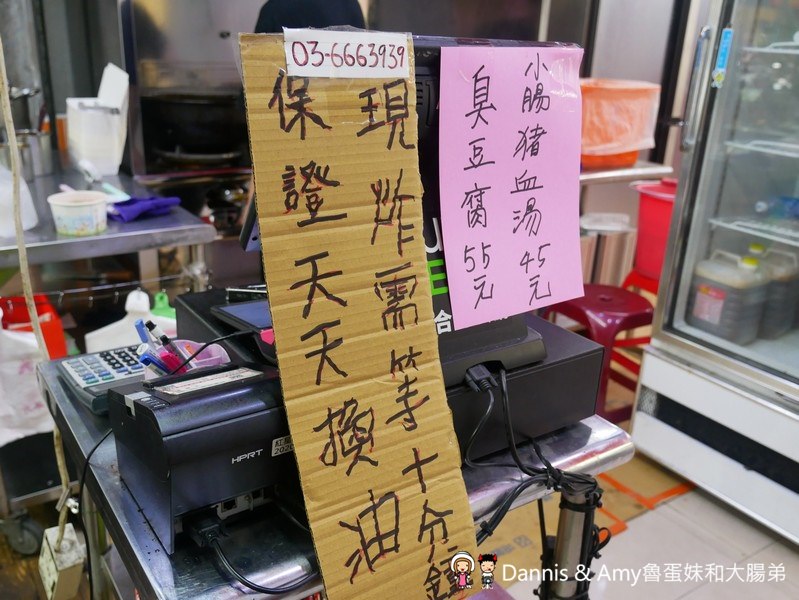 03-6663939
現炸需等十分鐘
保證天天換油
小腸豬血湯45元
臭豆腐55元
HPRT
Dannis & Amy魯蛋妹和大腸弟